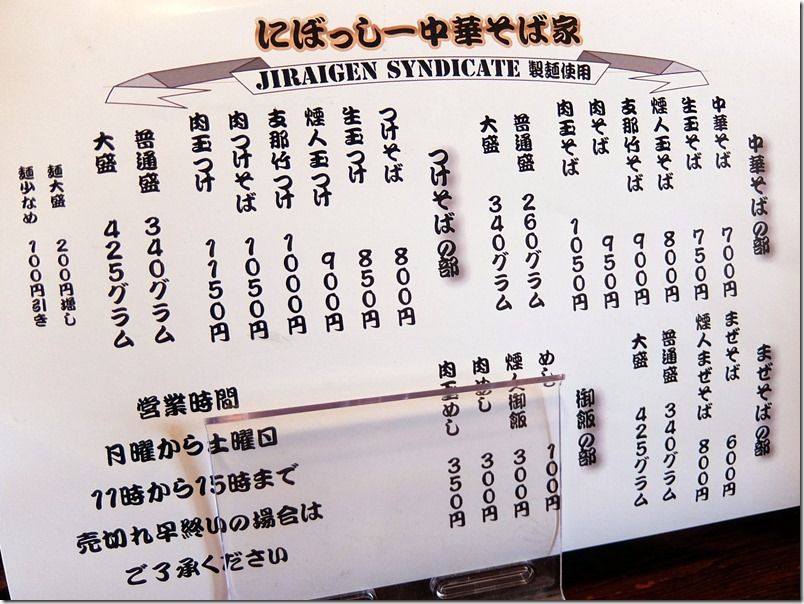 にぼっしー中華そば家
JIRAIGEN SYNDICATE 製麺使用
中華そばの部
中華そば 700円
生玉そば 750円
煙人玉そば 800円
支那竹そば 900円
肉そば 950円
肉玉そば 1050円
普通盛 260グラム
大盛 340グラム
つけそばの部
つけそば 800円
生玉つけ 850円
煙人玉つけ 900円
支那竹つけ 1000円
肉つけそば 1050円
肉玉つけ 1150円
普通盛 340グラム
大盛 425グラム
麺大盛 200円増し
麺少なめ 100円引き
まぜそばの部
まぜそば 600円
煙人まぜそば 800円
普通盛 340グラム
大盛 425グラム
御飯の部
めし 100円
煙人御飯 300円
肉めし 300円
肉玉めし 350円
営業時間
月曜から土曜日
11時から15時まで
売切れ早終いの場合は
ご了承ください